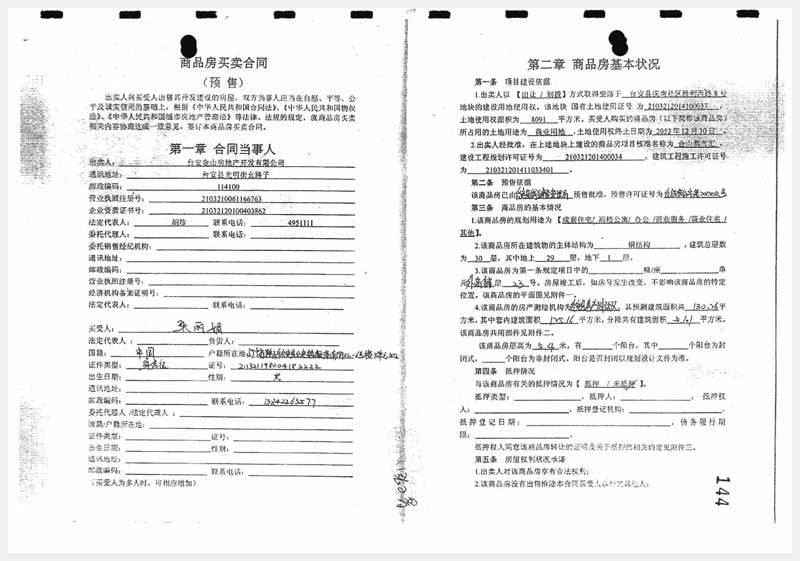 商品房买卖合同
（预 售）
出卖人向买受人出售其开发建设的房屋，双方当事人应当在自愿、平等、公
平及诚实信用的基础上，根据《中华人民共和国合同法》、《中华人民共和国物权
法》、《中华人民共和国城市房地产管理法》等法律、法规的规定，就商品房买卖
相关内容协商达成一致意见，签订本商品房买卖合同。
第一章 合同当事人
出卖人： 台安金山房地产开发有限公司
通讯地址： 台安县光明街
邮政编码： 114100
营业执照注册号： 2103210061166763
企业资质证书号： 21032120100403862
法定代表人： 胡珍 联系电话： 4951111
委托代理人： 联系电话：
委托销售经纪机构：
通讯地址：
邮政编码：
营业执照注册号：
经济机构备案证明号：
法定代表人： 联系电话：
买受人：
法定代表人： 负责人：
国籍： 中国 户籍所在地
证件类型： 身份证 证号：
出生日期： 性别： 男
通讯地址：
邮政编码： 联系电话：
委托代理人/法定代理人：
国籍/户籍所在地：
证件类型： 证号：
出生日期： 性别：
通讯地址：
邮政编码： 联系电话：
（买受人为多人时，可相应增加）
第二章 商品房基本状况
第一条 项目建设依据
1.出卖人以【出让/划拨】方式取得坐落于 台安县庆南社区胜利西路 号
地块的建设用地使用权。该地块 国有土地使用证号 为 2103212014100037，
土地使用权面积为 8091 平方米，买受人购买的商品房（以下简称该商品房）
所占用的土地用途为 商业用地，土地使用权终止日期为 2053年12月30日。
2.出卖人经批准，在上述地块上建设的商品房项目核准名称为
建设工程规划许可证号为 210321201400034 ，建筑工程施工许可证号
为 210321201411033401 。
第二条 预售依据
该商品房已由 预售批准，预售许可证号为
第三条 商品房的基本情况
1.该商品房的规划用途为【成套住宅/高档公寓/办公/商业服务/商业住宅/
其他】。
2.该商品房所在建筑物的主体结构为 钢结构 ，建筑总层数
为 30 层，其中地上 29 层，地下 1 层。
3.该商品房为第一条规定项目中的 幢/座
单元 层 23 号。房屋竣工后，如房号发生改变，不影响该商品房的特定
位置。该商品房的平面图见附件一。
4.该商品房的房产测绘机构为 ，其预测建筑面积共 130.26 平
方米，其中套内建筑面积 平方米，分摊共有建筑面积 平方米。
该商品房共用部位见附件二。
该商品房层高为 米，有 个阳台，其中 个阳台为封
闭式， 个阳台为非封闭式。阳台是否封闭以规划设计文件为准。
第四条 抵押情况
与该商品房有关的抵押情况为【 抵押 / 未抵押 】。
抵押类型： ，抵押人： ，抵押权
人： ，抵押登记机构： ，
抵押登记日期： ，债务履行期
限： 。
抵押权人同意该商品房转让的证明及关于抵押的相关约定见附件三。
第五条 房屋权利状况承诺
1.出卖人对该商品房享有合法权利；
2.该商品房没有出售给除本合同买受人以外的其他人；
144